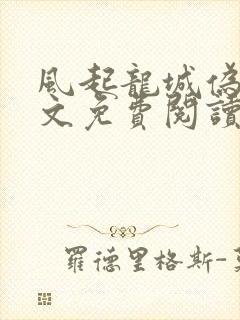 風起龍城偽
文免費閱讀
羅德里格斯-莫